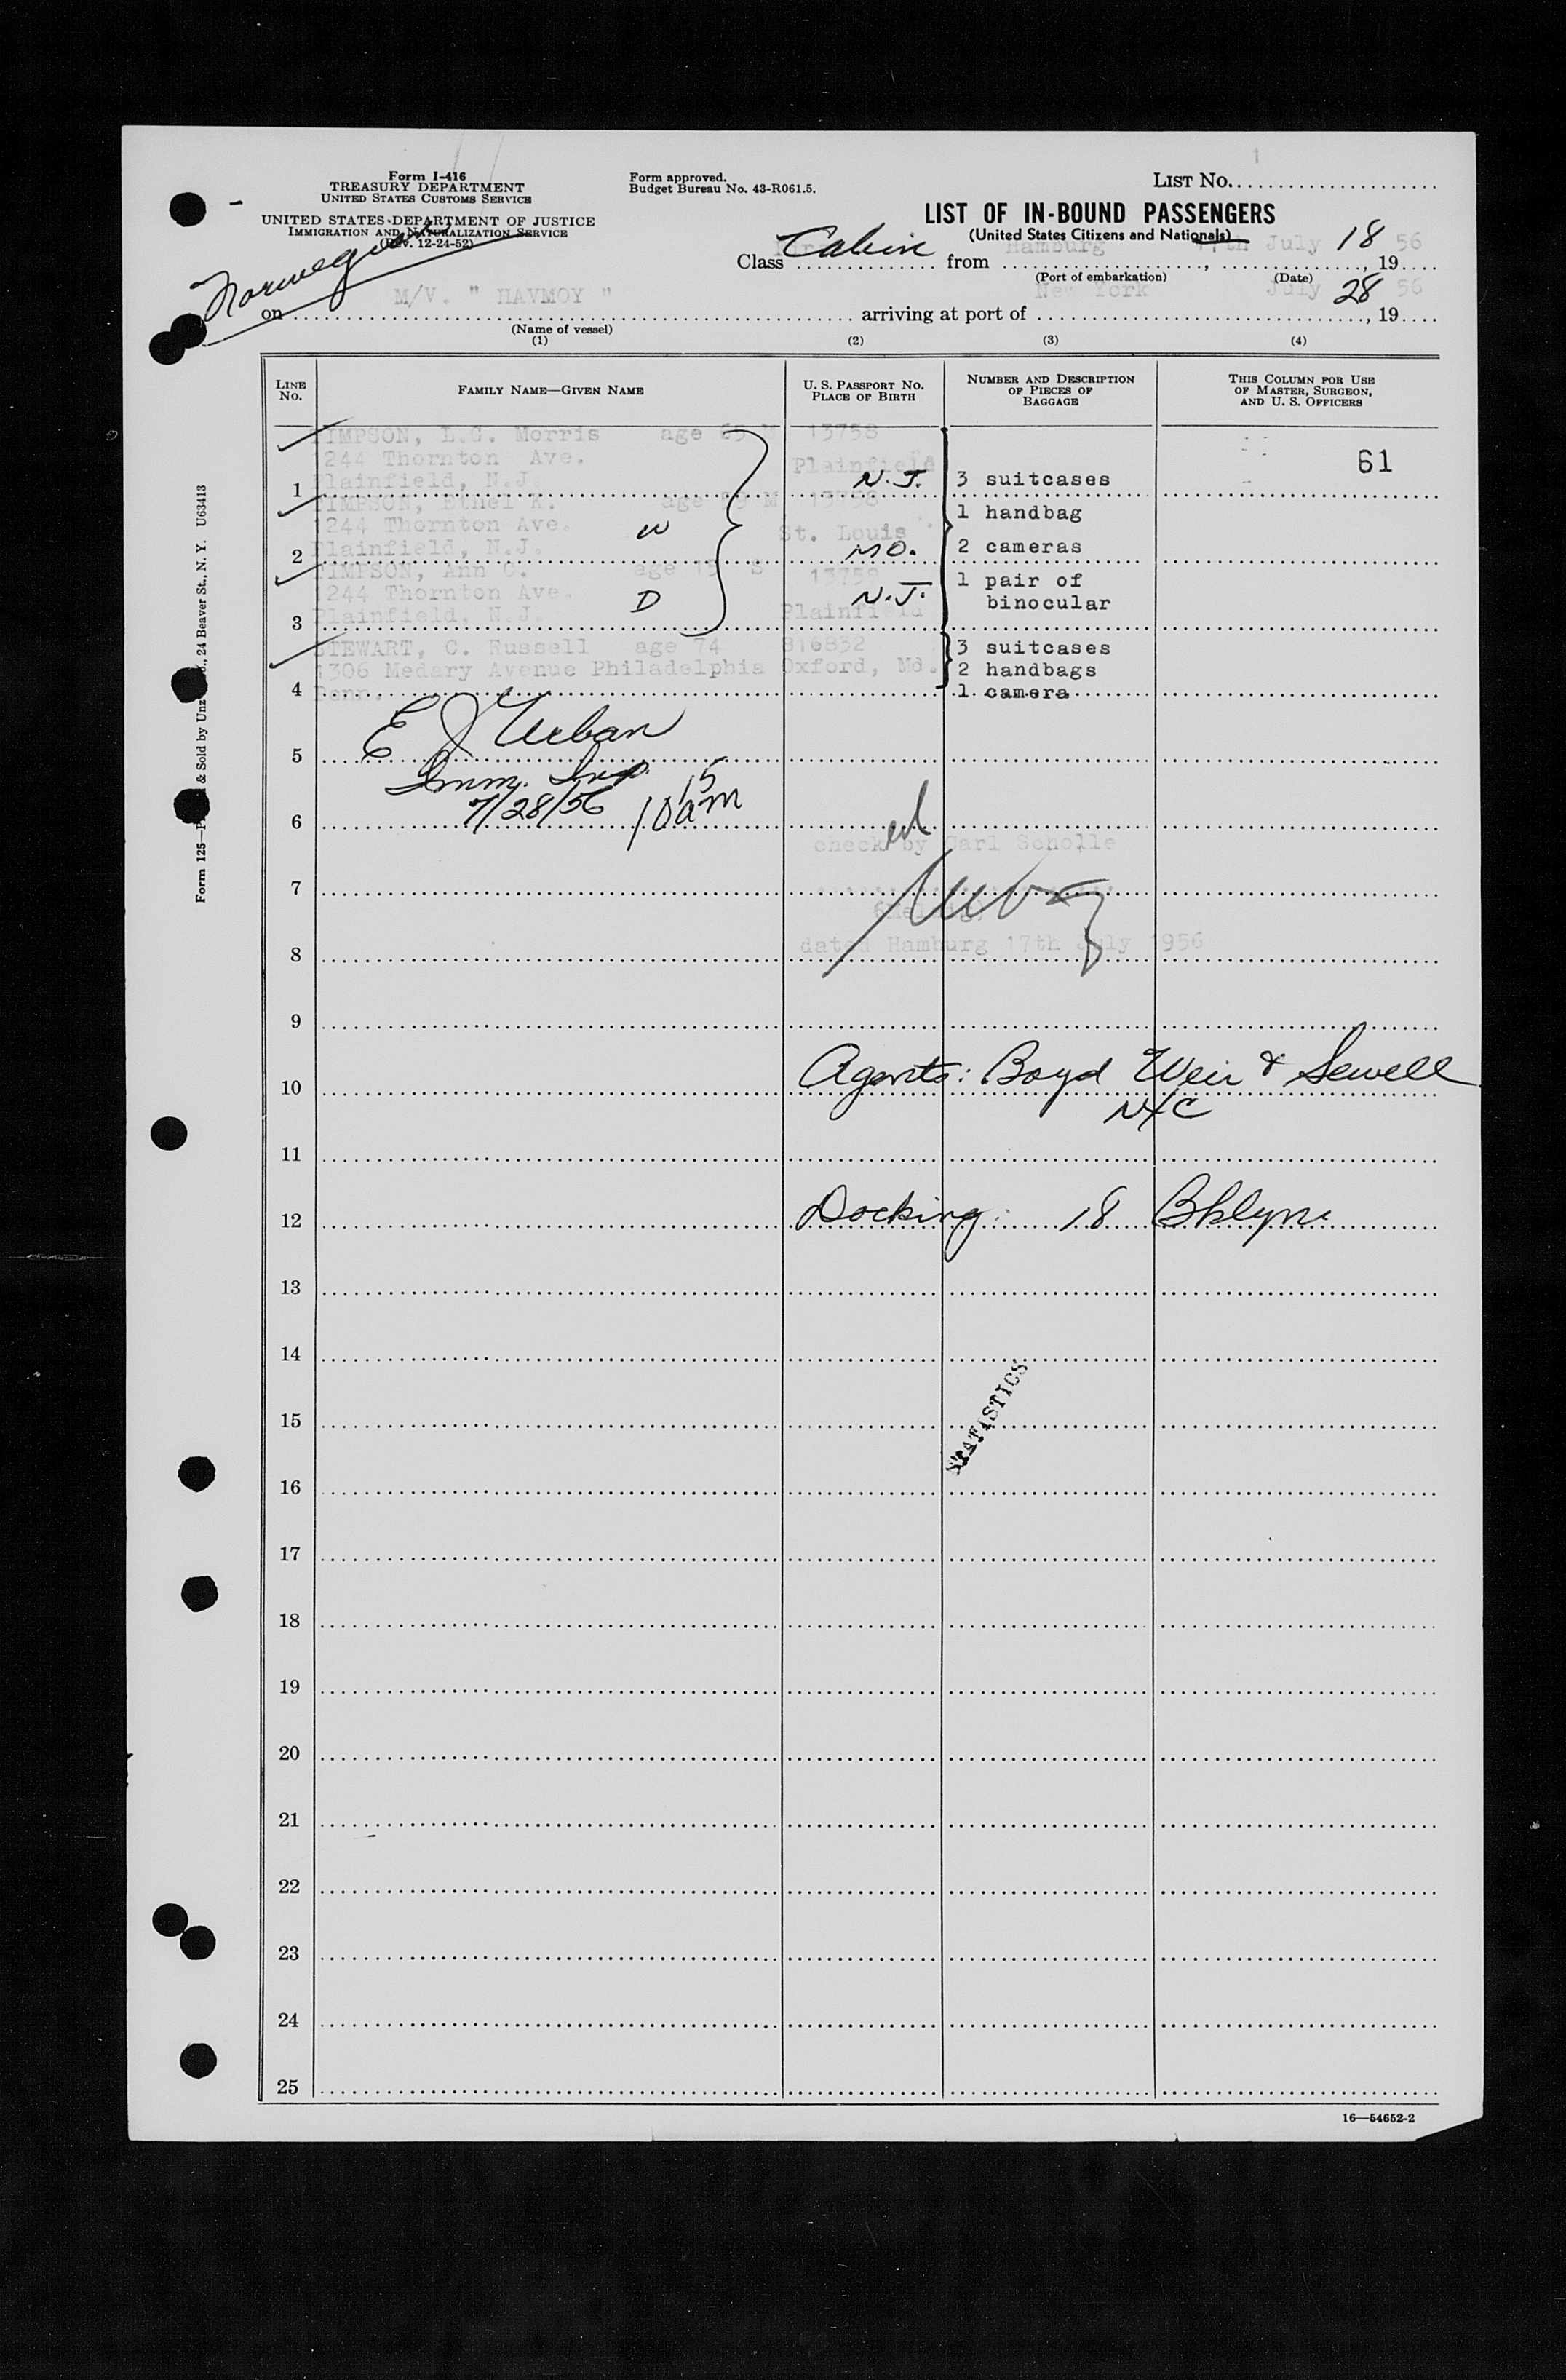 1
Form I-416
TREASURY DEPARTMENT
UNITED STATES CUSTOMS SERVICE
UNITED STATES DEPARTMENT OF JUSTICE
IMMIGRATION AND NATURALIZATION SERVICE
(Rev. 12-24-52)
Norwegian
Form approved.
Budget Bureau No. 43-R061.5.
LIST NO.
LIST OF IN-BOUND PASSENGERS
(United States Citizens and Nationals)
Class Cabin from Hamburg, July 18, 1956
(Port of embarkation) (Date)
on M/V. " HAVMOY " arriving at port of New York July 28, 1956
(Name of vessel)
(1) (2) (3) (4)
LINE NO. FAMILY NAME—GIVEN NAME U. S. PASSPORT NO. PLACE OF BIRTH NUMBER AND DESCRIPTION OF PIECES OF BAGGAGE THIS COLUMN FOR USE OF MASTER, SURGEON, AND U. S. OFFICERS
TIMPSON, L.G. Morris age M 13758
1244 Thornton Ave. Plainfield 61
1 Plainfield, N.J. N.J. 3 suitcases
TIMPSON, Ethel K. age M 13758 1 handbag
1244 Thornton Ave. W St. Louis
2 Plainfield, N.J. MO. 2 cameras
TIMPSON, Ann C. age S 13758 1 pair of
1244 Thornton Ave. D N.J. binocular
3 Plainfield, N.J. Plainfield
STEWART, C. Russell age 74 816832 3 suitcases
1306 Medary Avenue Philadelphia Oxford, Md. 2 handbags
4 Penn. 1 camera
E J Urban
5
Imm. Insp.
7/28/56 10 15 am
6
checked by Carl Scholle
7
dated Hamburg 17th July 1956
8
9
Agents: Boyd Weir & Sewell
10
NYC
11
12 Docking: 18 Bklyn.
13
14
15
STATISTICS
16
17
18
19
20
21
22
23
24
25
16—54652-2
Form 125— & Sold by Unz , 24 Beaver St., N. Y. U63413